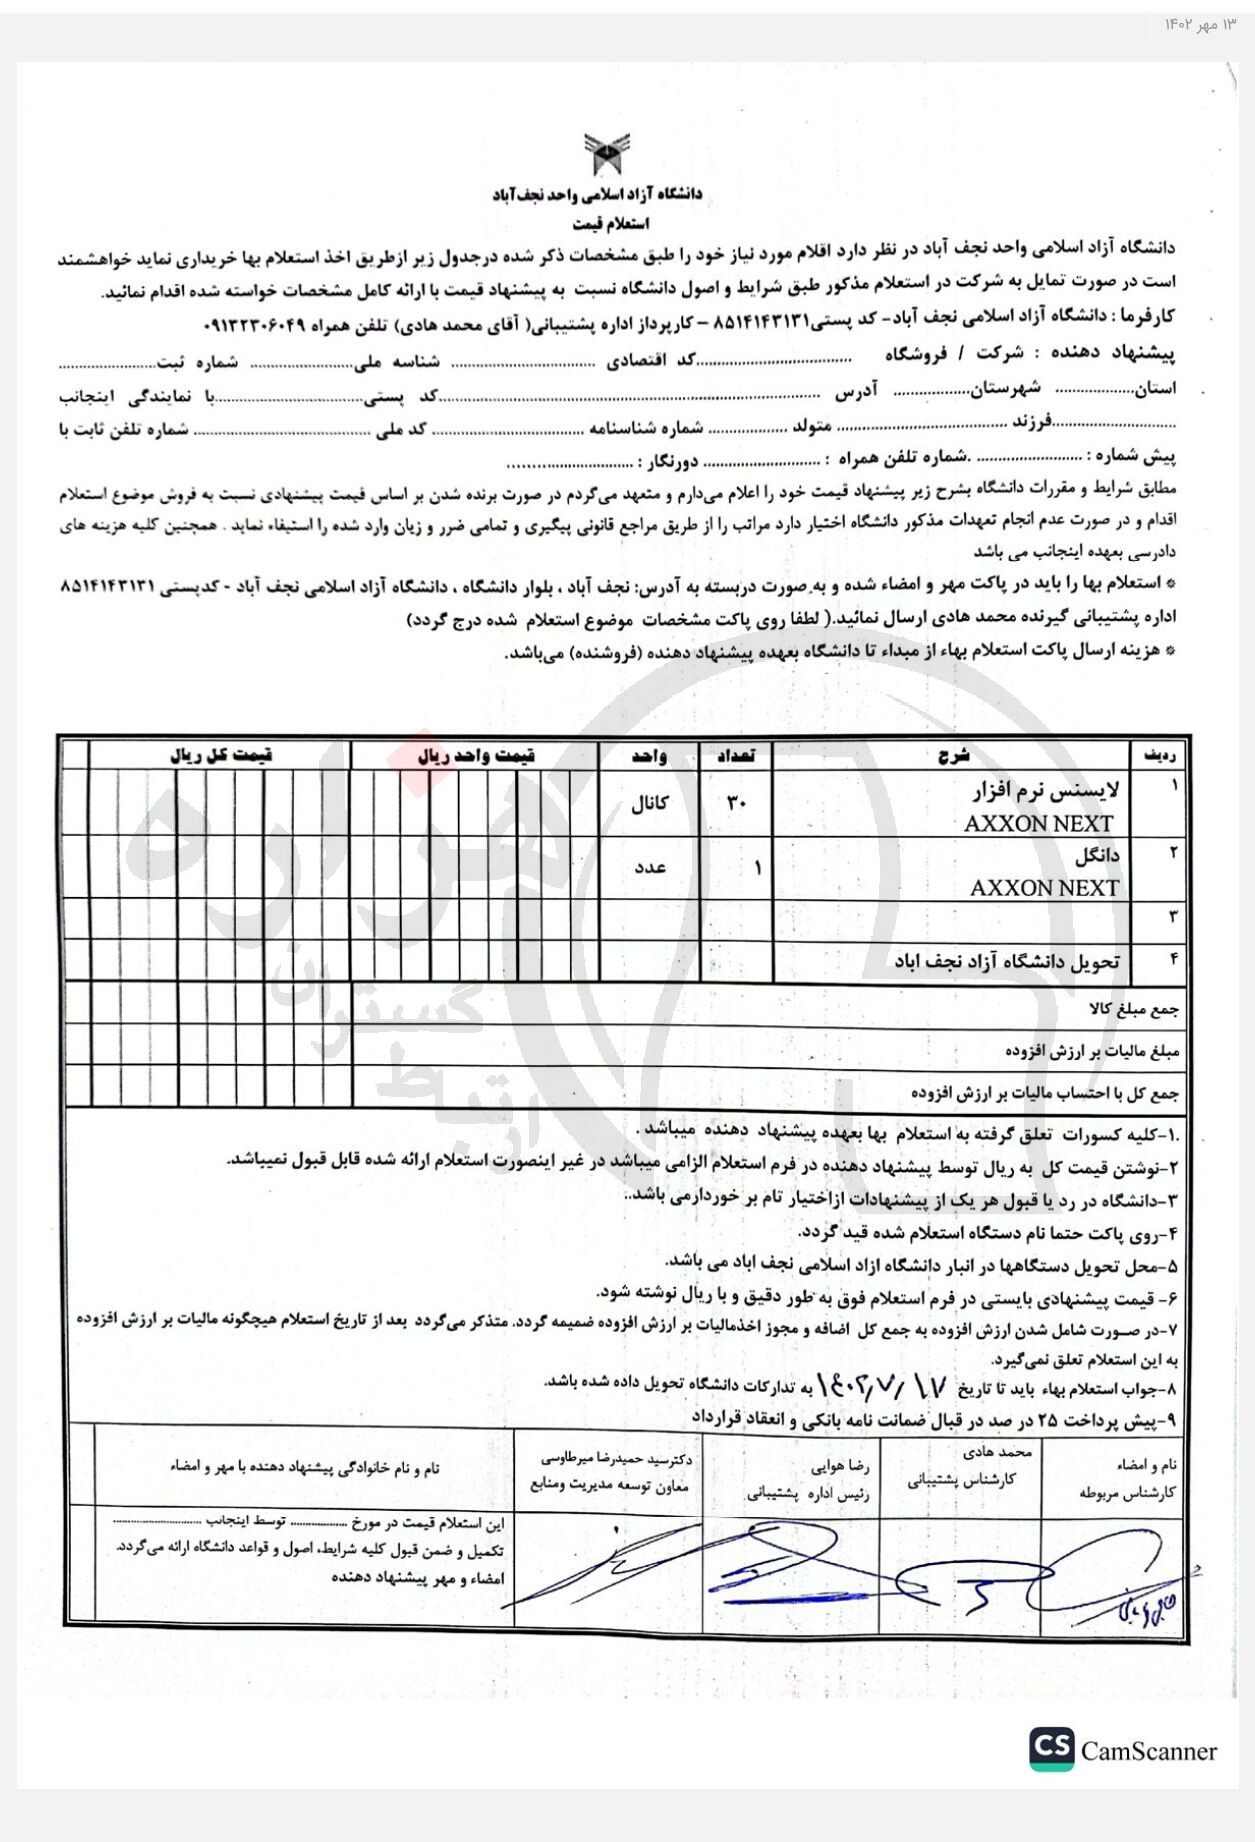 ۱۳ مهر ۱۴۰۲
دانشگاه آزاد اسلامی واحد نجف‌آباد
استعلام قیمت
دانشگاه آزاد اسلامی واحد نجف آباد در نظر دارد اقلام مورد نیاز خود را طبق مشخصات ذکر شده درجدول زیر ازطریق اخذ استعلام بها خریداری نماید خواهشمند
است در صورت تمایل به شرکت در استعلام مذکور طبق شرایط و اصول دانشگاه نسبت به پیشنهاد قیمت با ارائه کامل مشخصات خواسته شده اقدام نمائید.
کارفرما : دانشگاه آزاد اسلامی نجف آباد- کد پستی۸۵۱۴۱۴۳۱۳۱ – کارپرداز اداره پشتیبانی( آقای محمد هادی) تلفن همراه ۰۹۱۳۲۳۰۶۰۴۹
پیشنهاد دهنده : شرکت / فروشگاه ....................................کد اقتصادی ................................. شناسه ملی........................ شماره ثبت.......................
استان................... شهرستان.................. آدرس .........................................................................................کد پستی...................................با نمایندگی اینجانب
.............................فرزند ........................................ متولد ................... شماره شناسنامه .................................... کد ملی .......................................... شماره تلفن ثابت با
پیش شماره : ......................... .شماره تلفن همراه : ........................... دورنگار : ..............................
مطابق شرایط و مقررات دانشگاه بشرح زیر پیشنهاد قیمت خود را اعلام می‌دارم و متعهد می‌گردم در صورت برنده شدن بر اساس قیمت پیشنهادی نسبت به فروش موضوع استعلام
اقدام و در صورت عدم انجام تعهدات مذکور دانشگاه اختیار دارد مراتب را از طریق مراجع قانونی پیگیری و تمامی ضرر و زیان وارد شده را استیفاء نماید . همچنین کلیه هزینه های
دادرسی بعهده اینجانب می باشد
* استعلام بها را باید در پاکت مهر و امضاء شده و به صورت دربسته به آدرس: نجف آباد ، بلوار دانشگاه ، دانشگاه آزاد اسلامی نجف آباد - کدپستی ۸۵۱۴۱۴۳۱۳۱
اداره پشتیبانی گیرنده محمد هادی ارسال نمائید.( لطفا روی پاکت مشخصات موضوع استعلام شده درج گردد)
* هزینه ارسال پاکت استعلام بهاء از مبداء تا دانشگاه بعهده پیشنهاد دهنده (فروشنده) می‌باشد.
ردیف شرح تعداد واحد قیمت واحد ریال قیمت کل ریال
۱ لایسنس نرم افزار ۳۰ کانال
AXXON NEXT
۲ دانگل ۱ عدد
AXXON NEXT
۳
۴ تحویل دانشگاه آزاد نجف اباد
جمع مبلغ کالا
مبلغ مالیات بر ارزش افزوده
جمع کل با احتساب مالیات بر ارزش افزوده
هزاره
گستران
ارتباط
۱-کلیه کسورات تعلق گرفته به استعلام بها بعهده پیشنهاد دهنده میباشد .
۲-نوشتن قیمت کل به ریال توسط پیشنهاد دهنده در فرم استعلام الزامی میباشد در غیر اینصورت استعلام ارائه شده قابل قبول نمیباشد.
۳-دانشگاه در رد یا قبول هر یک از پیشنهادات ازاختیار تام بر خوردارمی باشد..
۴-روی پاکت حتما نام دستگاه استعلام شده قید گردد.
۵-محل تحویل دستگاهها در انبار دانشگاه ازاد اسلامی نجف اباد می باشد.
۶- قیمت پیشنهادی بایستی در فرم استعلام فوق به طور دقیق و با ریال نوشته شود.
۷-در صورت شامل شدن ارزش افزوده به جمع کل اضافه و مجوز اخذمالیات بر ارزش افزوده ضمیمه گردد. متذکر می‌گردد بعد از تاریخ استعلام هیچگونه مالیات بر ارزش افزوده
به این استعلام تعلق نمی‌گیرد.
۸-جواب استعلام بهاء باید تا تاریخ ۱۴۰۲/۷/۱۷ به تدارکات دانشگاه تحویل داده شده باشد.
۹-پیش پرداخت ۲۵ در صد در قبال ضمانت نامه بانکی و انعقاد قرارداد
نام و امضاء
کارشناس مربوطه
محمد هادی
کارشناس پشتیبانی
رضا هوایی
رئیس اداره پشتیبانی
دکترسید حمیدرضا میرطاوسی
معاون توسعه مدیریت ومنابع
نام و نام خانوادگی پیشنهاد دهنده با مهر و امضاء
این استعلام قیمت در مورخ ................ توسط اینجانب .........................
تکمیل و ضمن قبول کلیه شرایط، اصول و قواعد دانشگاه ارائه می‌گردد.
امضاء و مهر پیشنهاد دهنده
CS CamScanner